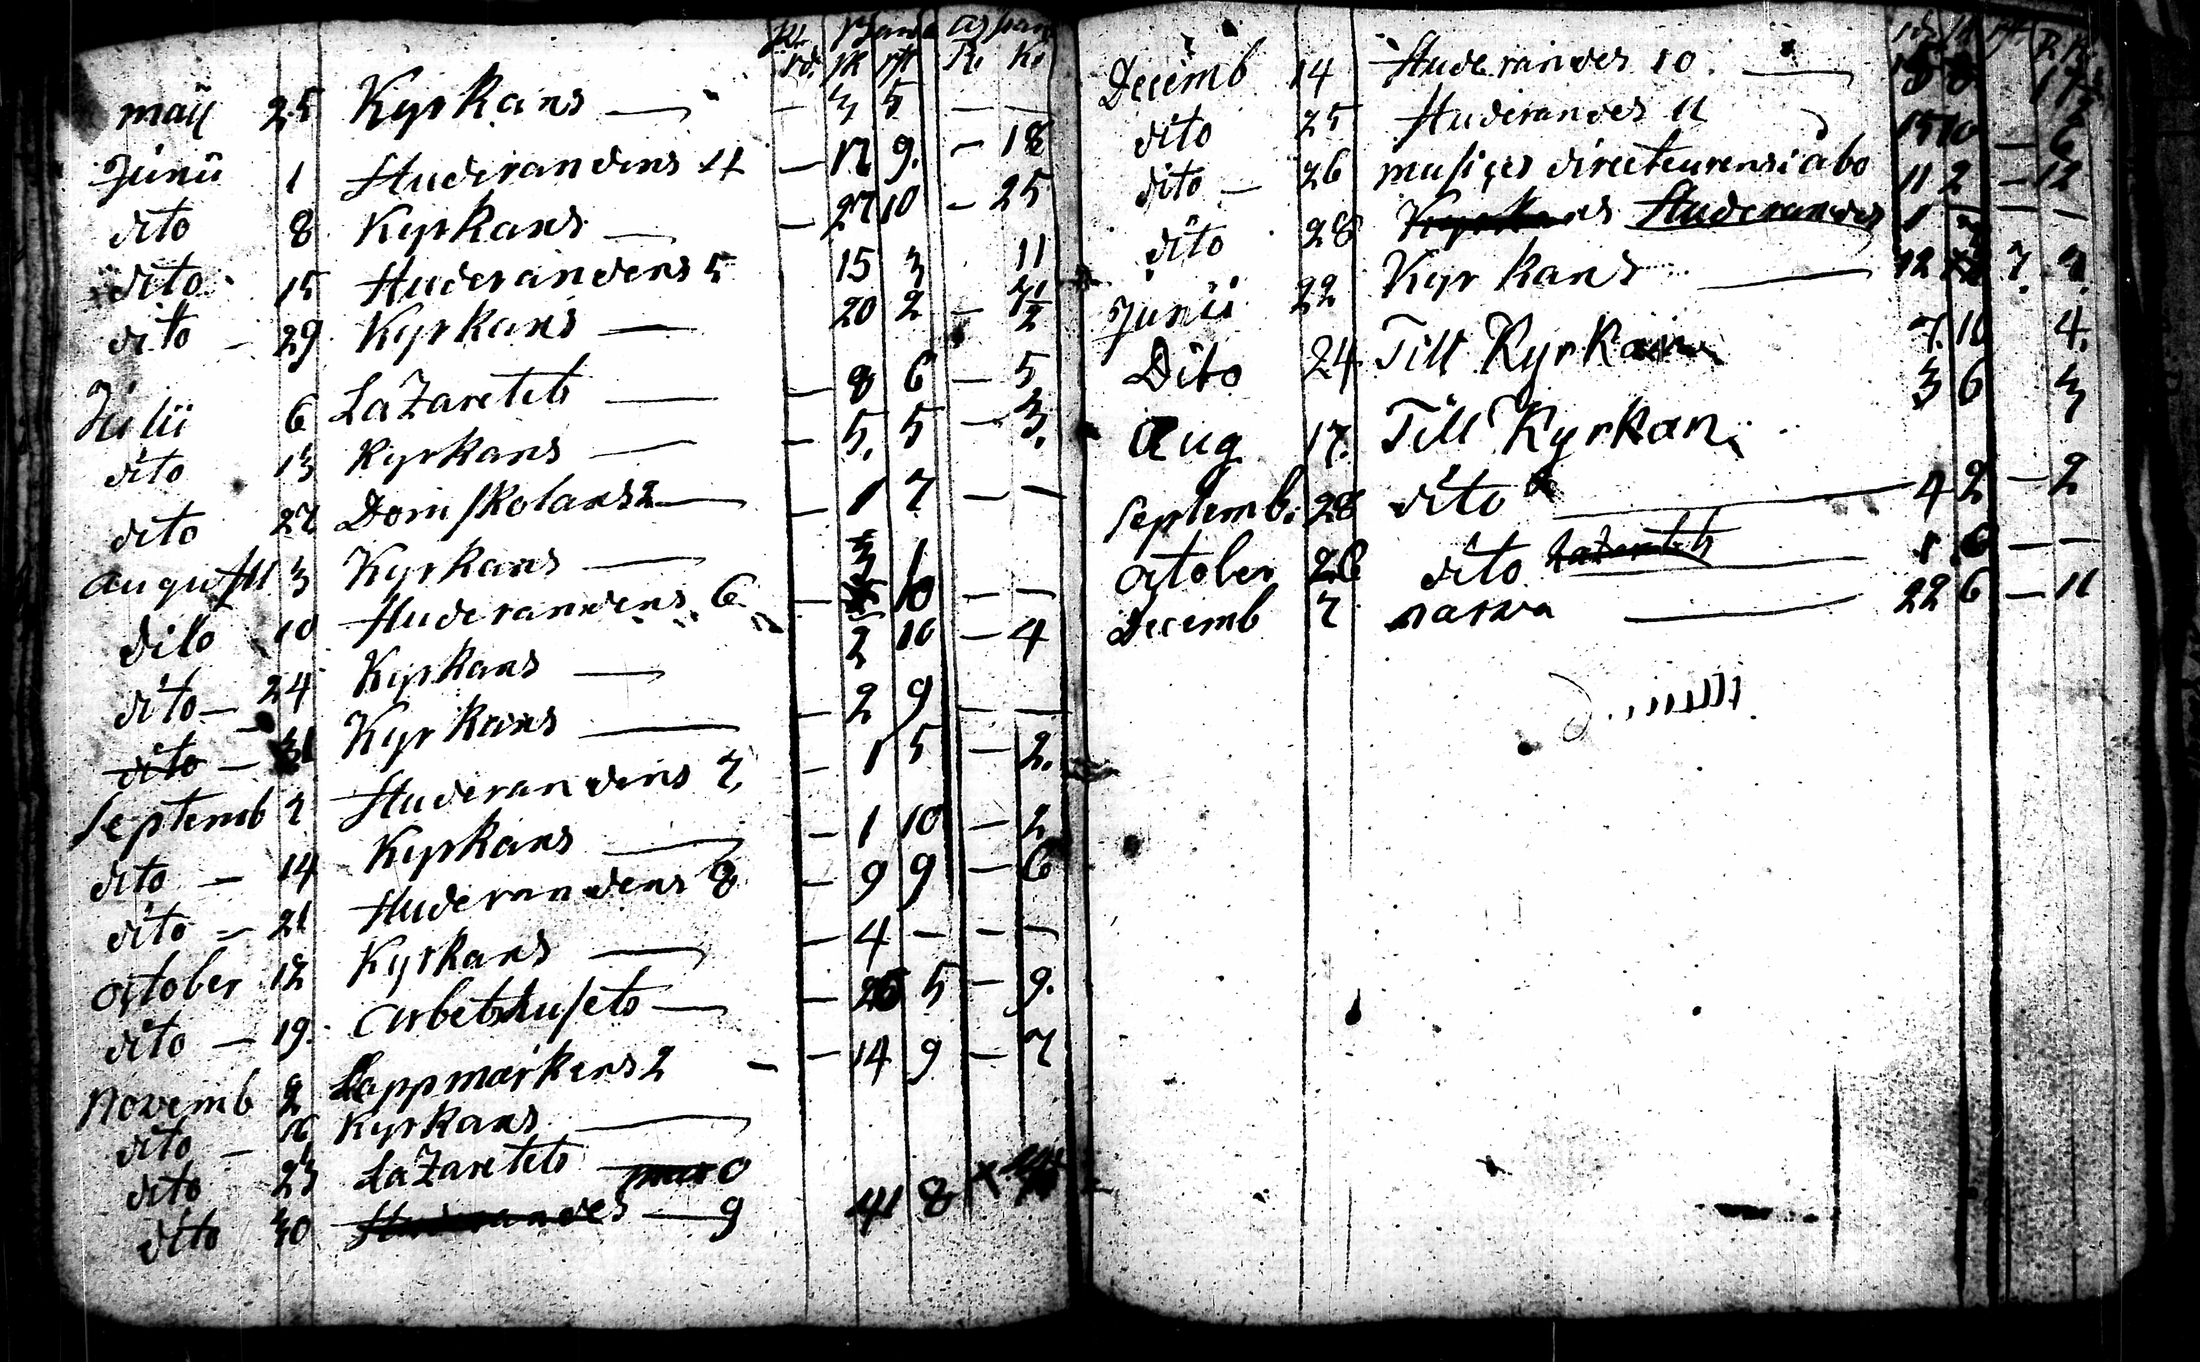 maij 25 Kyrkans — – 3 5 – –
Junii 1 Studerandens 4 – 12 9. – 18
dito 8 Kyrkans — – 27 10 – 25
dito 15 Studerandens 5 15 3 11
dito – 29 Kyrkans — 20 2 – 7½
Julii 6 LaZaretets — – 8 6 – 5.
dito 13 Kyrkans — – 5. 5 – 3.
dito 27 Dom skolans 2 — – 1 7 – –
augusti 3 Kyrkans — 3 1
dito 10 Studerandens 6 – 10 – –
dito – 24 Kyrkans — 2 10 – 4
dito – 31 Kyrkans — – 2 9 – –
Septemb 7 Studerandens 7. – 1 5 – 2.
dito – 14 Kyrkans — – 1 10 – 2
dito – 21 Studerandens 8 – 9 9 – 6
October 12 Kyrkans — – 4 – – –
dito – 19. Arbetshusets — – 5 – 9.
Novemb 2 Lappmarkens 2 – – 14 9 – 7
dito – 16 Kyrkans —
dito 23 LaZaretets —
dito 30 Studerandes — 9 41 8
Decemb 14 Studerandes 10. —
dito 25 Studerandes 11 15 10 – 6
dito – 26 musices directeurens i åbo 11 2 – 12
dito 28 Kyrkans Studerandes 1
Junii 22 Kyrkans — 12 7. 7.
Dito 24 Till Kyrkan 7. 10 4.
Aug 17. Till Kyrkan. 3 6 3
Septemb. 28 dito — 4 2 – 2
October 26 dito Lazarets — 1 6 – –
Decemb 7 narva — 22 6 – 11